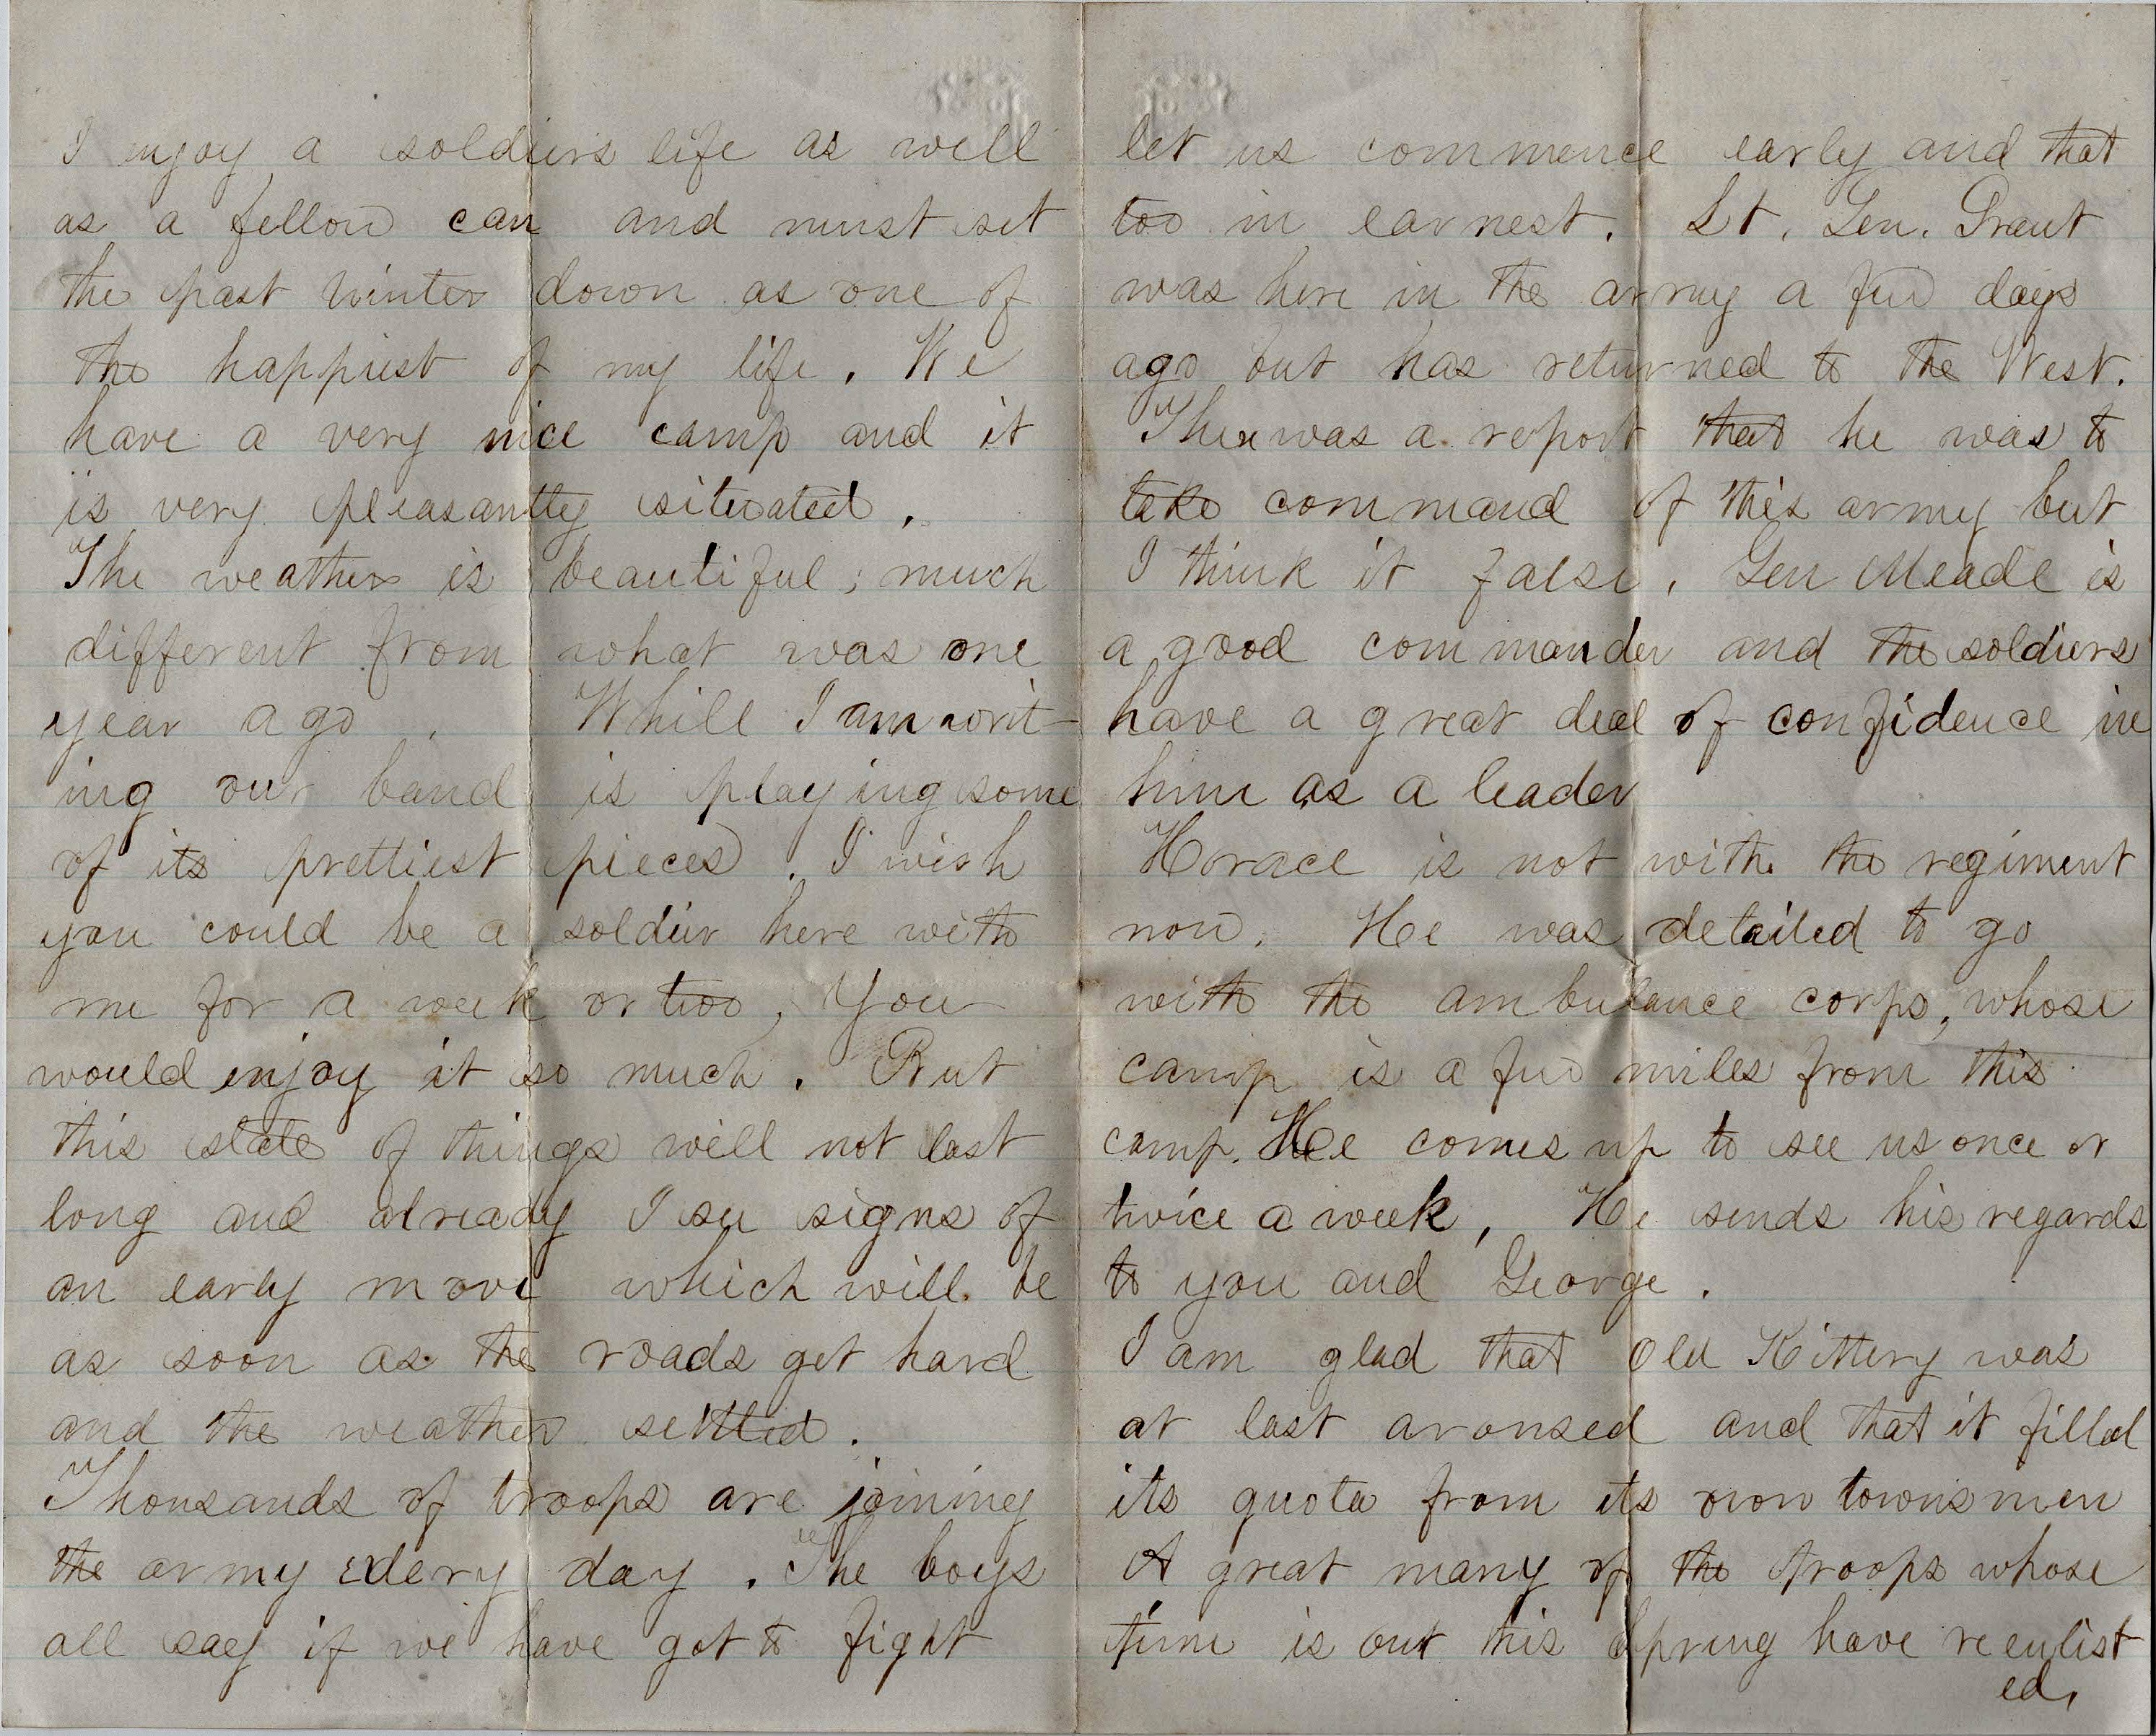 I enjoy a soldiers life as well
as a fellow can and must set
the past winter down as one of
the happiest of my life. We
have a very nice camp and it
is very pleasantly situated.
The weather is beautiful; much
different from what was one
year ago. While I am writ-
ing our band is playing some
of its prettiest pieces. I wish
you could be a soldier here with
me for a week or two, You
would enjoy it so much. But
this state of things will not last
long and already I see signs of
an early move which will be
as soon as the roads get hard
and the weather settled.
Thousands of troops are joining
the army every day. The boys
all say if we have got to fight
let us commence early and that
too in earnest. Lt. Gen. Grant
was here in the army a few days
ago but has returned to the West.
There was a report that he was to
take command of this army but
I think it false. Gen Meade is
a good commander and the soldiers
have a great deal of confidence in
him as a leader
Horace is not with the regiment
now. He was detailed to go
with the ambulance corps, whose
camp is a few miles from this
camp. He comes up to see us once or
twice a week, He sends his regards
to you and George.
I am glad that Old Kittery was
at last aronsed and that it filled
its quota from its own townsmen
A great many of the troops whose
time is out this spring have reenlist
ed.